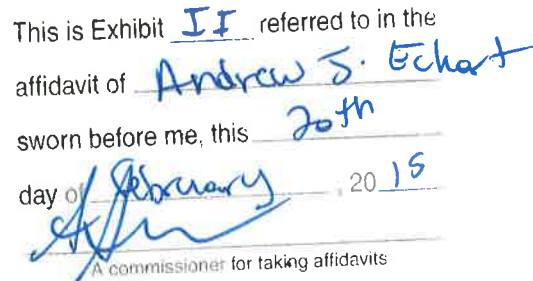 This is Exhibit II referred to in the
affidavit of Andrew J. Eckart
sworn before me, this 20th
day of February, 2015
A commissioner for taking affidavits